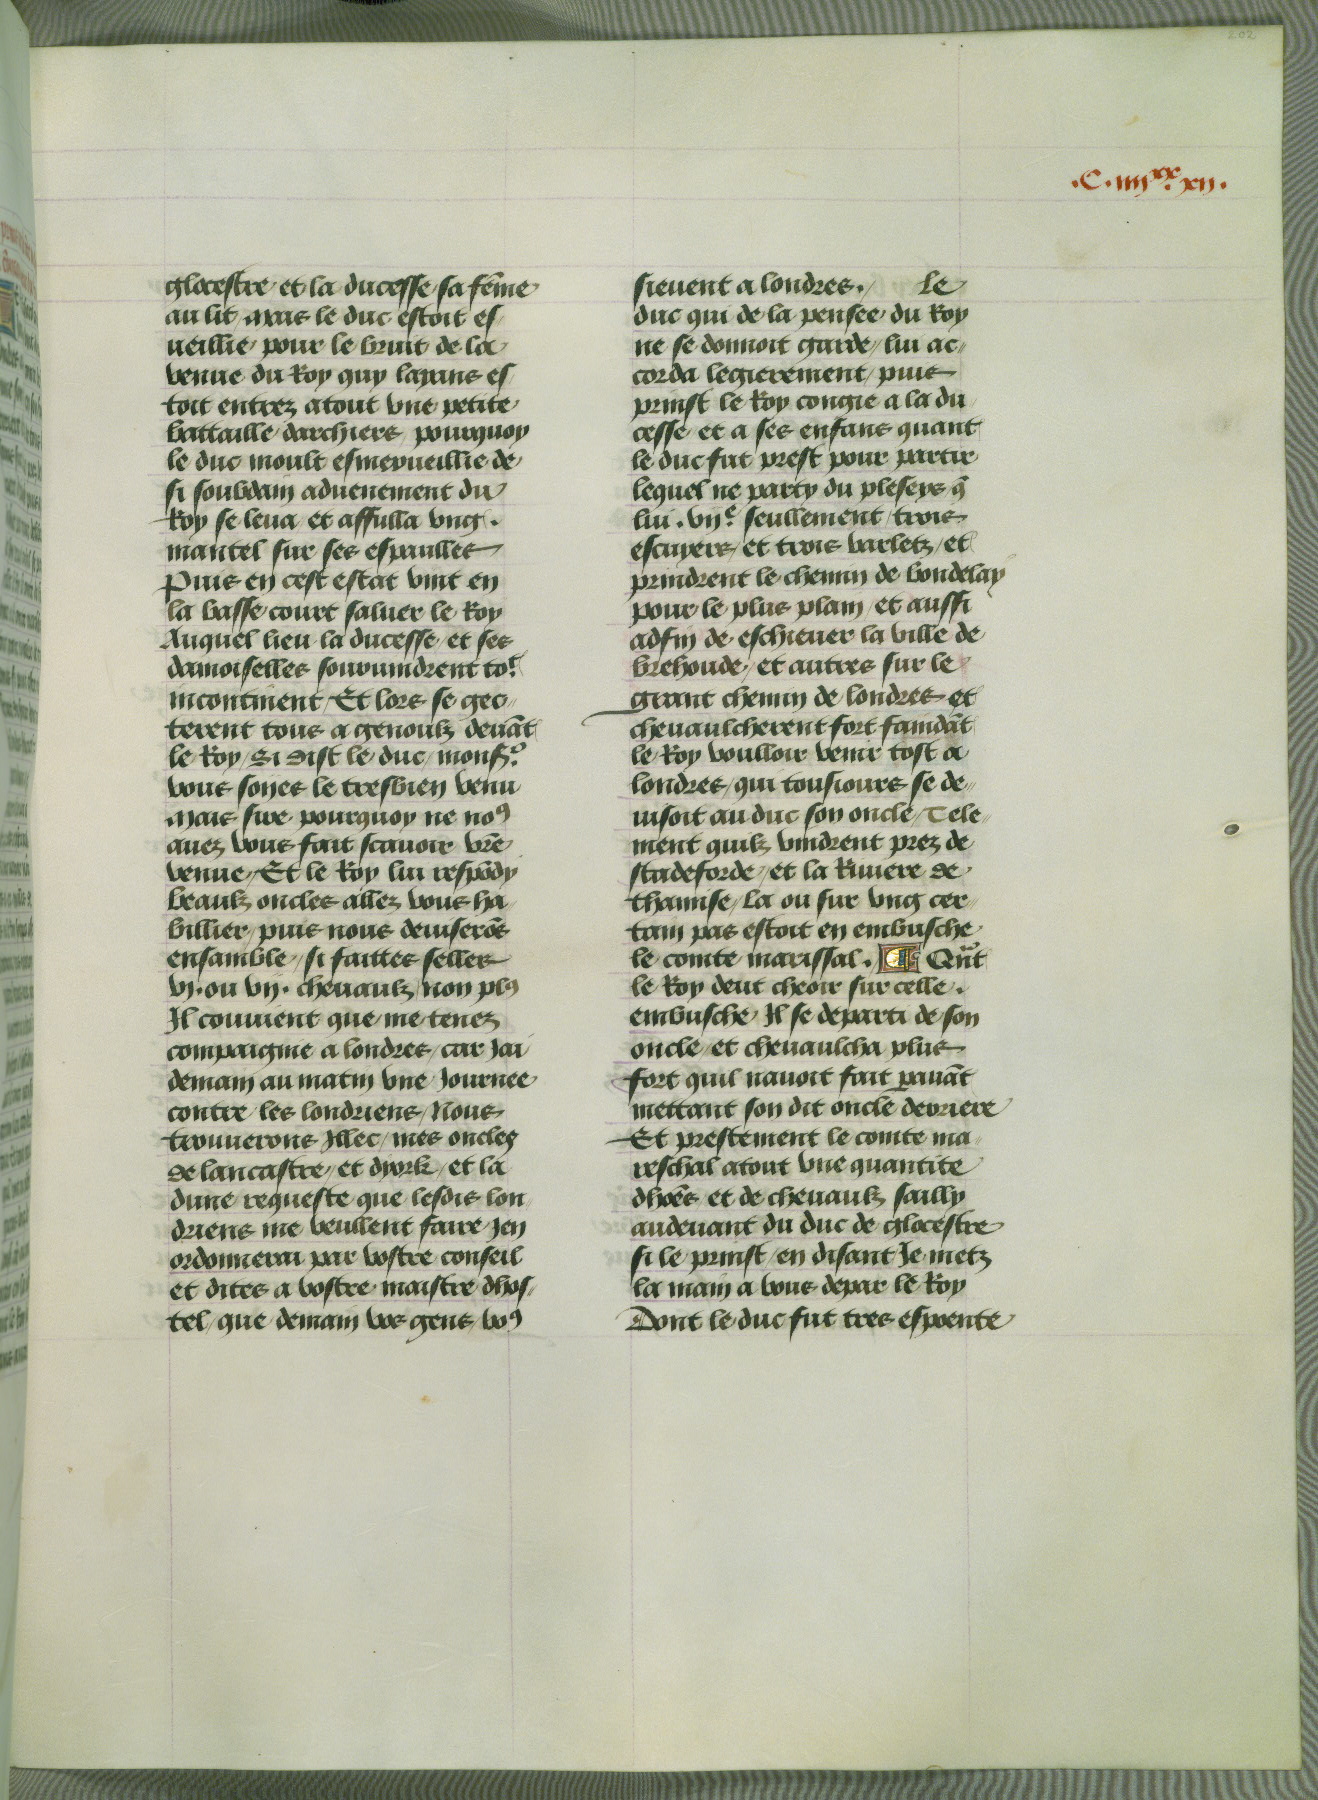 202
.C.iiijxx.xij.
glocestre et la ducesse sa fēme
au lit, Mais le duc estoit es
ueillie pour le bruit de la
venue du Roy quy layans es
toit entrez atout vne petite
battaille darchiers, pourquoy
le duc moult esmerueillie de
si soubdain aduenement du
Roy se leua et affulla vng.
mantel sur ses espaulles
Puis en cest estat vint en
la basse court saluer le Roy
Auquel lieu la ducesse et ses
damoiselles souruindrent to9
incontinent / Et lors se gec-
terent tous a genoulz deuāt
le Roy / Si dist le duc / monsr
vous soyes le tresbien venu
Mais sire pourquoy ne no9
auez vous fait scauoir vrē
venue / Et le Roy lui respōdy
beaulz oncles allez vous ha-
billier, puis nous deuiserōs
ensamble / si faittes seller
vj. ou vij. cheuaulz non pl9
Il conuient que me tenez
compaignie a londres / car Jai
demain au matin vne Journee
contre les londriens / Nous
trouuerons Jllec / mes oncles
de lancastre / et dyork / et la
dune requeste que lesdis lon
driens me veullent faire Jen
ordonnerai par vostre conseil
et dites a vostre maistre dhos-
tel / que demain voz gens vo9
sieuent a londres. Le
duc qui de la pensee du Roy
ne se donnoit garde / lui ac-
corda legierement / puis
prinst le Roy congie a la du
cesse et a ses enfans quant
le duc fut prest pour partir
lequel ne party du pleseys q̄
lui .vije seullement / trois
escuyers / et trois varletz / et
prindrent le chemin de bondelay
pour le plus plain / et aussi
adfin de eschieuer la ville de
brehoude / et autres sur le
grant chemin de londres et
cheuaulcherent fort faindāt
le Roy voulloir venir tost a
londres / qui tousiours se de-
uisoit au duc son oncle / Tele-
ment quilz vindrent prez de
stadeforde / et la Riuiere de
thamise / La ou sur vng cer-
tain pas estoit en embusche
le comte marissal. Qn̄t
le Roy deut cheoir sur celle.
embusche Il se departi de son
oncle / et cheuaulcha plus
fort quil nauoit fait pauāt
mettant son dit oncle derriere
Et prestement le comte ma-
reschal atout vne quantite
dhōes et de cheuaulz sailly
audeuant du duc de glocestre
si le prinst / en disant Je metz
la main a vous depar le Roy
Dont le duc fut tres espoente